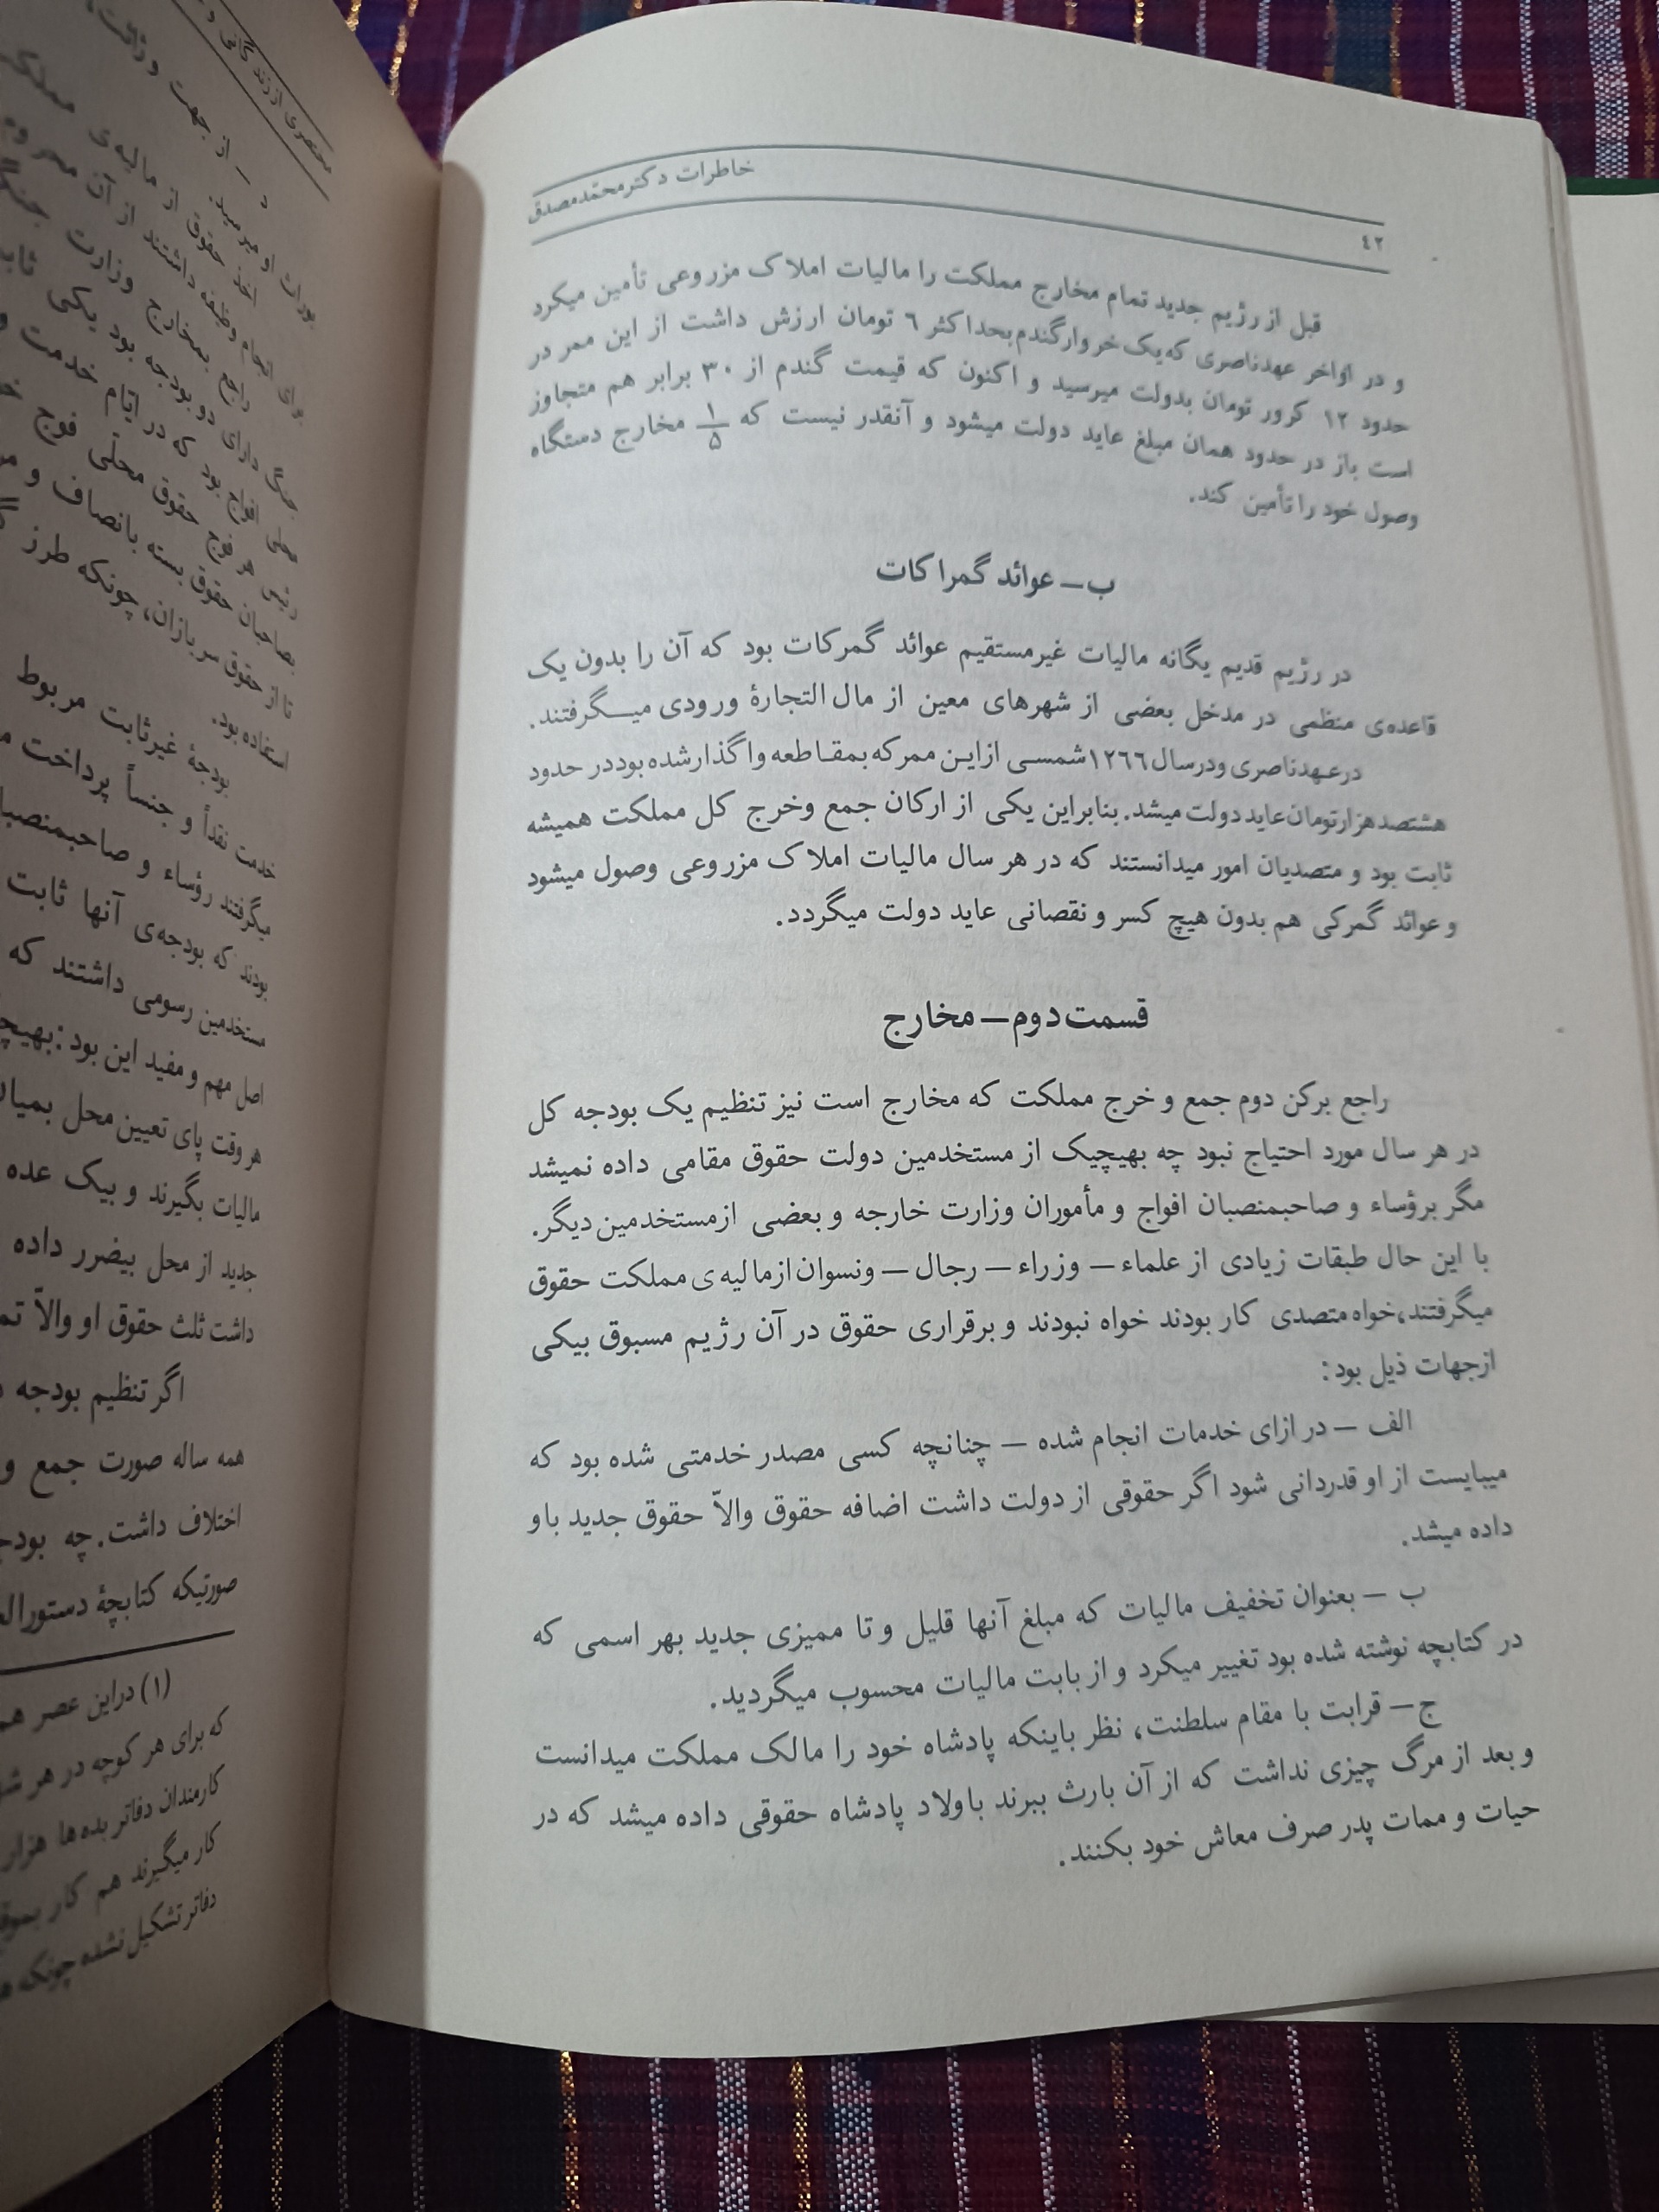 خاطرات دکتر محمّد مصدق
٤٢
قبل از رژیم جدید تمام مخارج مملکت را مالیات املاک مزروعی تأمین میکرد
و در اواخر عهد ناصری که یک خروار گندم بحداکثر ٦ تومان ارزش داشت از این ممر در
حدود ١٢ کرور تومان بدولت میرسید و اکنون که قیمت گندم از ٣٠ برابر هم متجاوز
است باز در حدود همان مبلغ عاید دولت میشود و آنقدر نیست که ١/٥ مخارج دستگاه
وصول خود را تأمین کند.
ب ــ عوائد گمراکات
در رژیم قدیم یگانه مالیات غیرمستقیم عوائد گمرکات بود که آن را بدون یک
قاعده‌ی منظمی در مدخل بعضی از شهرهای معین از مال التجارهٔ ورودی میــگرفتند.
در عهد ناصری و در سال ١٢٦٦ شمسی از این ممر که بمقاطعه واگذار شده بود در حدود
هشتصد هزار تومان عاید دولت میشد. بنابراین یکی از ارکان جمع وخرج کل مملکت همیشه
ثابت بود و متصدیان امور میدانستند که در هر سال مالیات املاک مزروعی وصول میشود
و عوائد گمرکی هم بدون هیچ کسر و نقصانی عاید دولت میگردد.
قسمت دوم ــ مخارج
راجع برکن دوم جمع و خرج مملکت که مخارج است نیز تنظیم یک بودجه کل
در هر سال مورد احتیاج نبود چه بهیچیک از مستخدمین دولت حقوق مقامی داده نمیشد
مگر برؤساء و صاحبمنصبان افواج و مأموران وزارت خارجه و بعضی از مستخدمین دیگر.
با این حال طبقات زیادی از علماء ــ وزراء ــ رجال ــ ونسوان از مالیه ی مملکت حقوق
میگرفتند، خواه متصدی کار بودند خواه نبودند و برقراری حقوق در آن رژیم مسبوق بیکی
ازجهات ذیل بود:
الف ــ در ازای خدمات انجام شده ــ چنانچه کسی مصدر خدمتی شده بود که
میبایست از او قدردانی شود اگر حقوقی از دولت داشت اضافه حقوق والاّ حقوق جدید باو
داده میشد.
ب ــ بعنوان تخفیف مالیات که مبلغ آنها قلیل و تا ممیزی جدید بهر اسمی که
در کتابچه نوشته شده بود تغییر میکرد و از بابت مالیات محسوب میگردید.
ج ــ قرابت با مقام سلطنت، نظر باینکه پادشاه خود را مالک مملکت میدانست
و بعد از مرگ چیزی نداشت که از آن بارث ببرند باولاد پادشاه حقوقی داده میشد که در
حیات و ممات پدر صرف معاش خود بکنند.
مختصری از زندگانی
د ــ از جهت
اخذ حقوق از مالیه‌ی
برای انجام وظیفه داشتند از آن
راجع بمخارج وزارت
جنگ دارای دو بودجه بود یکی
محلی افواج بود که در ایّام خدمت
رئیس هر فوج حقوق محلّی فوج
بصاحبان حقوق بسته بانصاف و
تا از حقوق سربازان، چونکه طرز
استفاده بود.
بودجهٔ غیرثابت مربوط
خدمت نقداً و جنساً پرداخت
میگرفتند رؤساء و
بودند که بودجه‌ی آنها ثابت
مستخدمین رسمی داشتند که
اصل مهم و مفید این بود:
هر وقت پای تعیین محل
مالیات بگیرند و بیک عده
جدید از محل بیضرر داده
داشت ثلث حقوق او والاّ
اگر تنظیم بودجه
همه ساله صورت جمع و
اختلاف داشت. چه
صورتیکه کتابچهٔ
(١) دراین عصر
که برای هر کوچه در هر
کارمندان دفاتر بده‌ها هزار
کار میگیرند هم کار
دفاتر تشکیل نشده چونکه